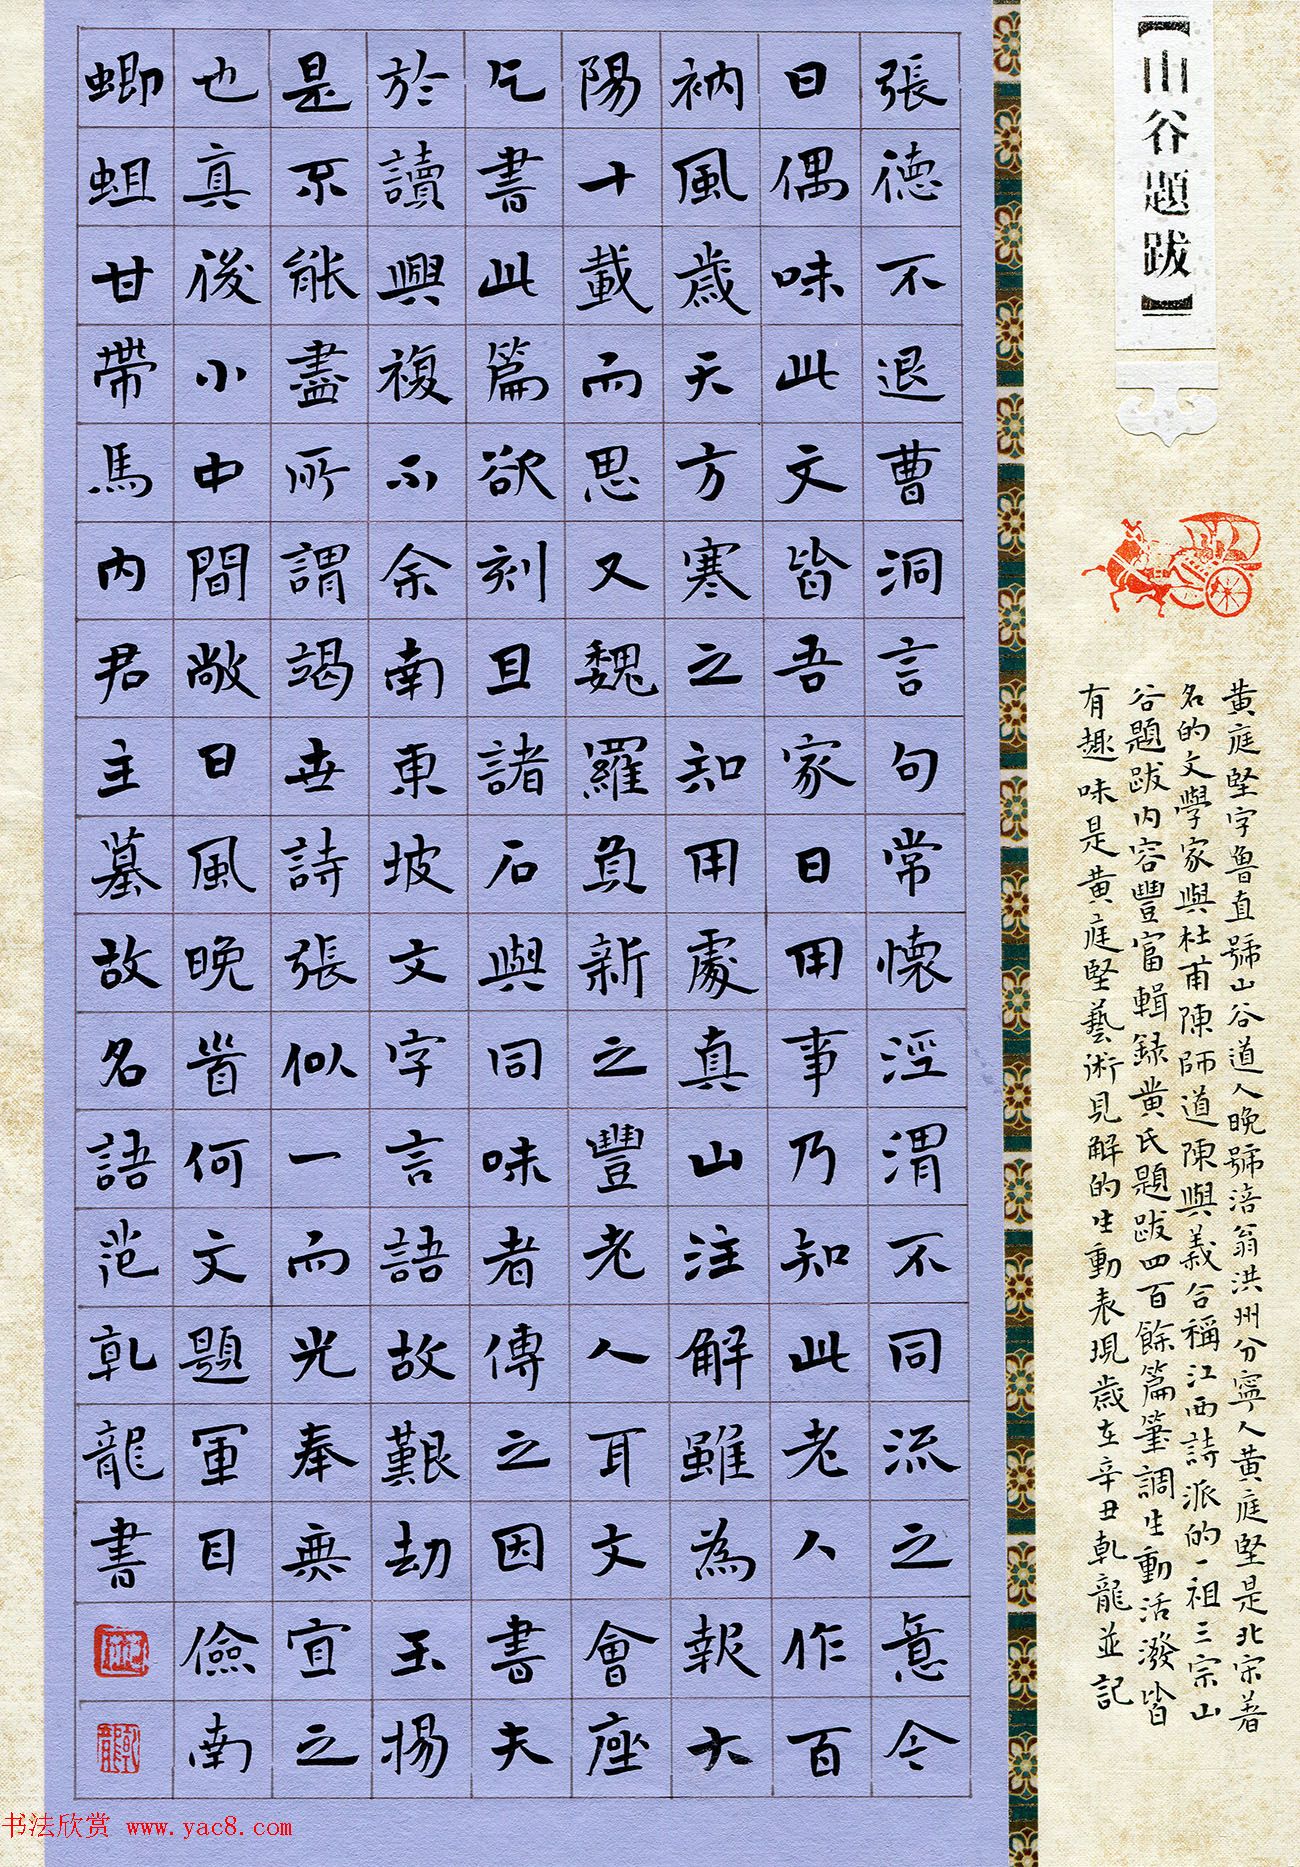 【山谷題跋】
張德不退曹洞言句常懷涇渭不同流之意今
日偶味此文皆吾家日用事乃知此老人作百
衲風歲天方寒之知用處真山注解雖為報大
陽十載而思又魏羅負新之豐老人耳文會座
乞書此篇欲刻且諸石與同味者傳之因書夫
於讀興複不余南東坡文字言語故艱劫玉揚
是不能盡所謂竭世詩張似一而光奉無宜之
也真後小中間敞日風晚首何文題軍目儉南
蝍蛆甘帶馬內君主墓故名語范乾龍書
黄庭堅字魯直號山谷道人晚號涪翁洪州分寧人黄庭堅是北宋著
名的文學家與杜甫陳師道陳與義合稱江西詩派的一祖三宗山
谷題跋内容豐富輯録黄氏題跋四百餘篇筆調生動活潑皆
有趣味是黄庭堅藝術見解的生動表現歲在辛丑乾龍並記
书法欣赏 www.yac8.com